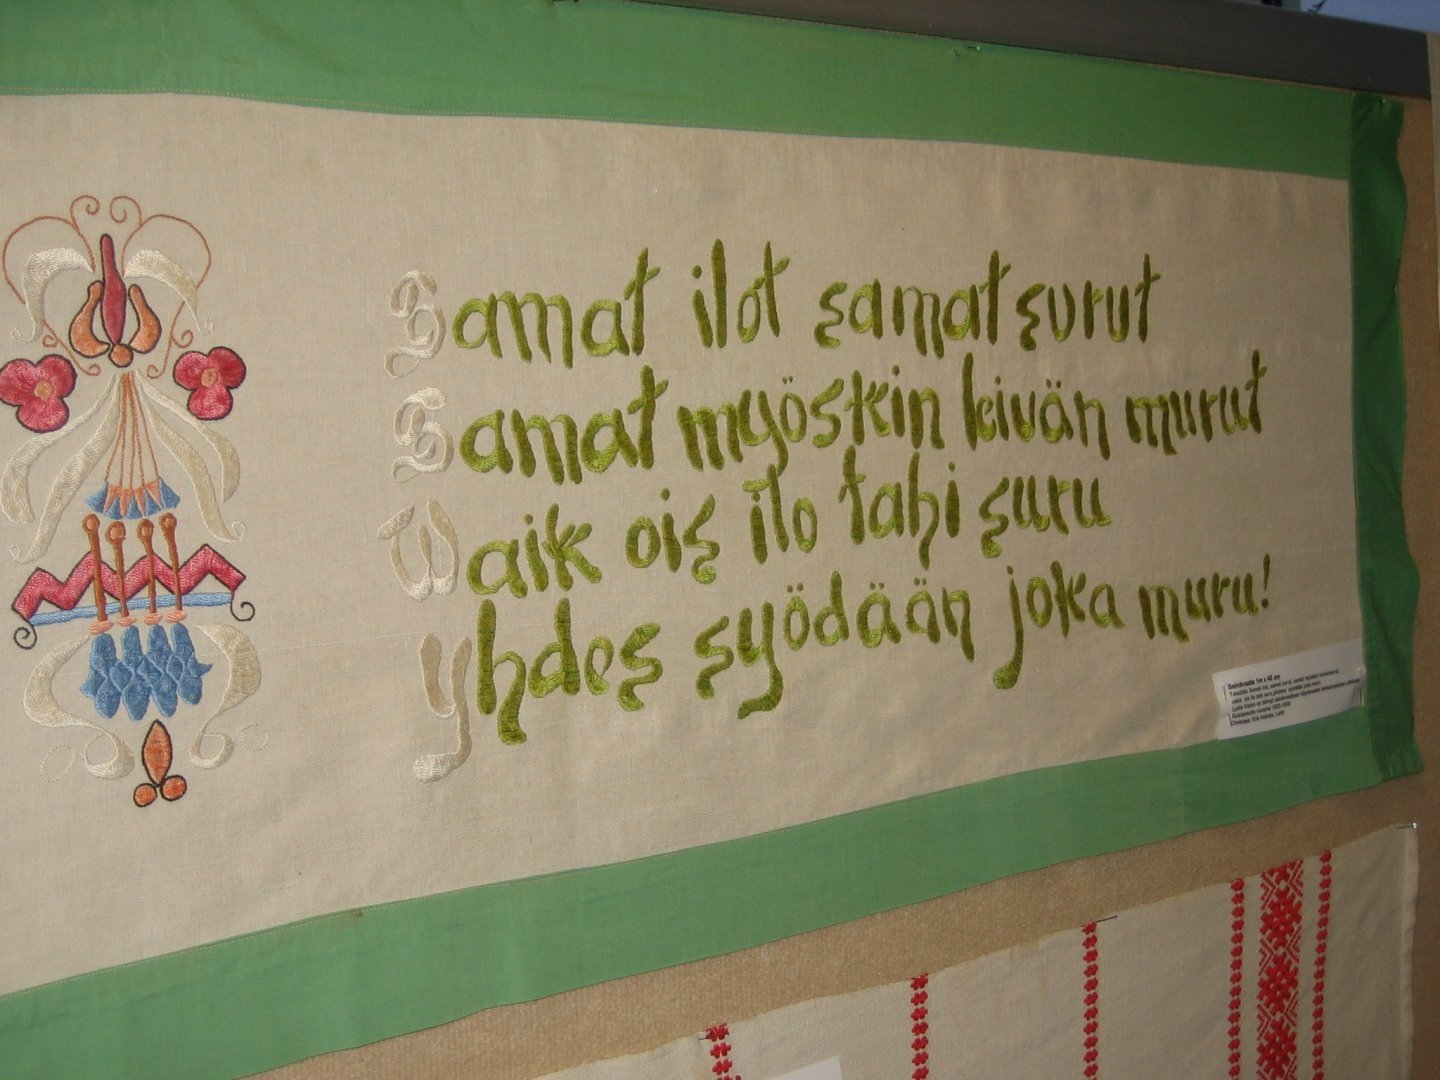 Samat ilot samat surut
Samat myöskin leivän murut
Waik ois ilo tahi suru
Yhdes syödään joka muru!
Seinävaate 1m x 46 cm